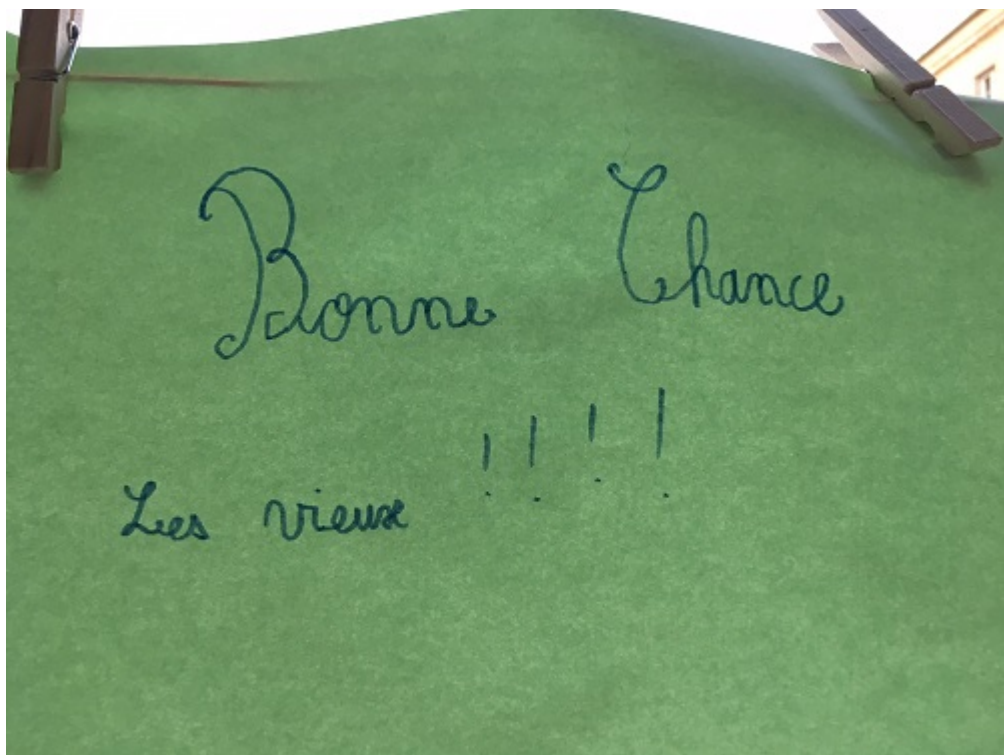 Bonne Chance
Les vieux !!!!